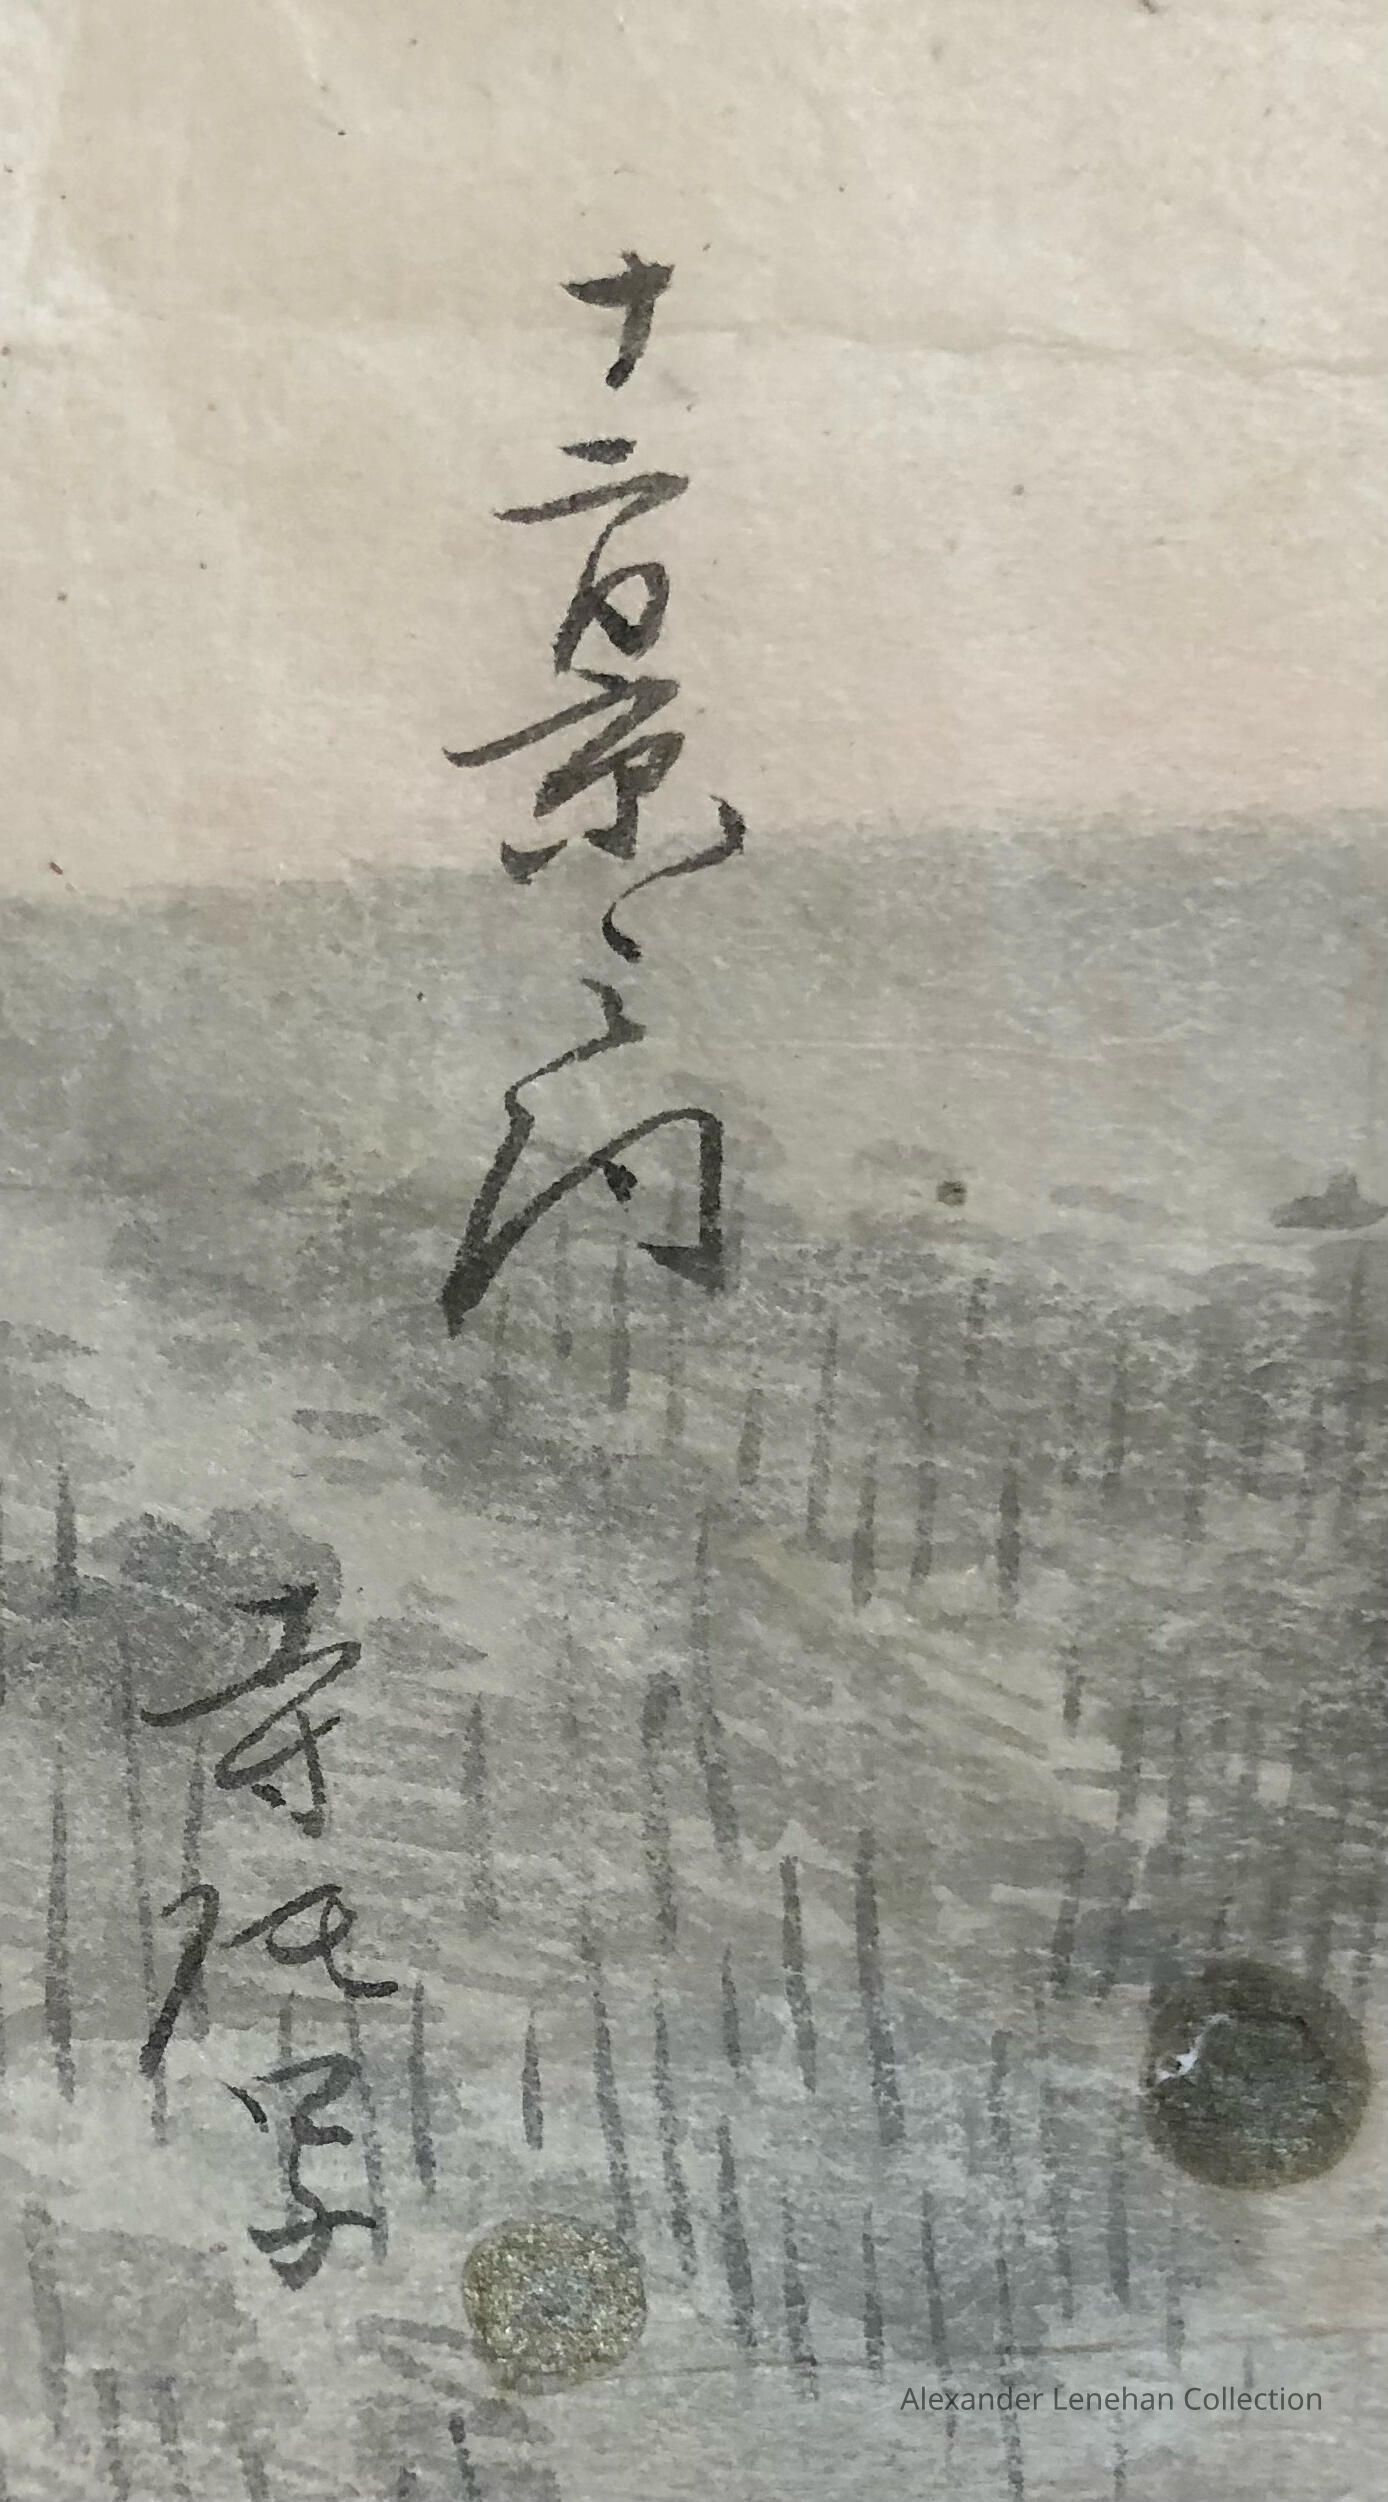 十二景之内
寿写
Alexander Lenehan Collection